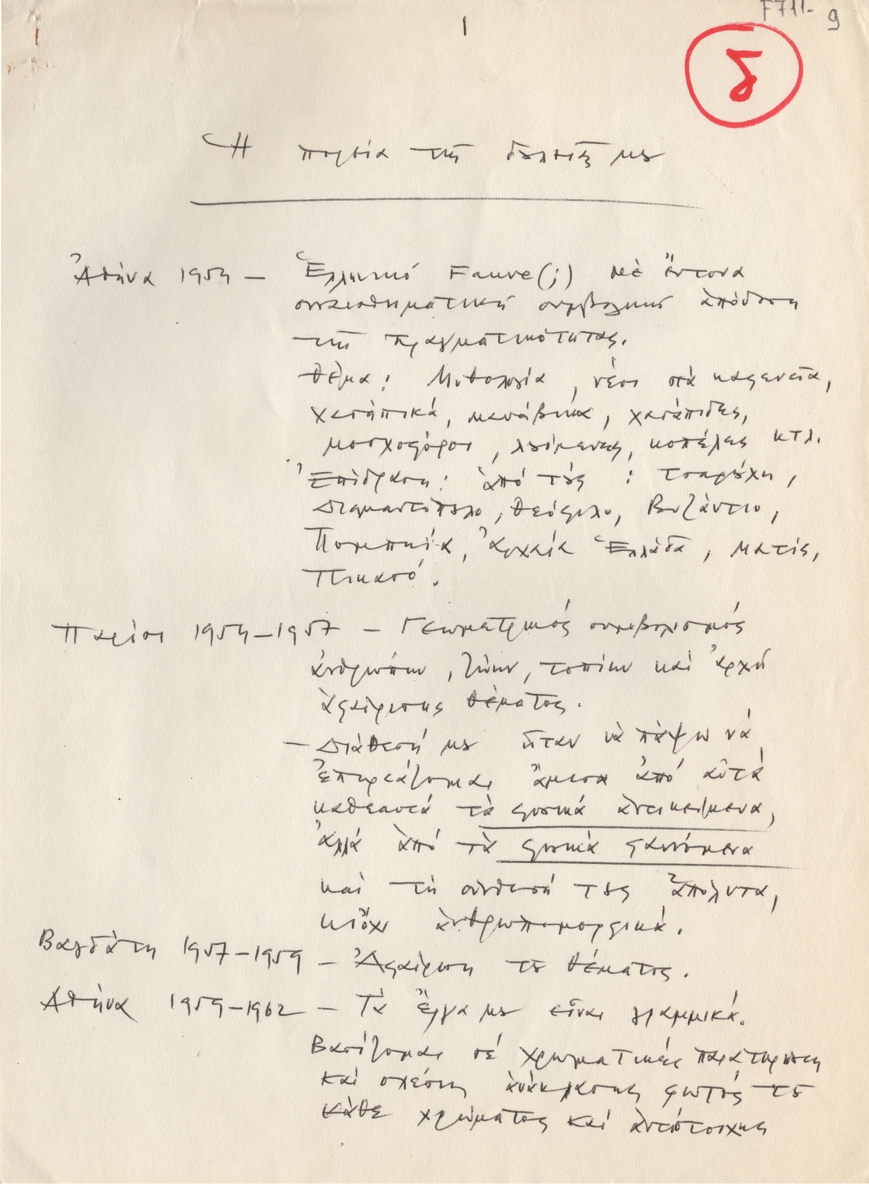 1
F711- 9
δ
Ἡ πορεία τῆς δουλειᾶς μου
Ἀθήνα 1954 – Ἑλληνικό Fauve(;) μὲ ἔντονα
συναισθηματική συμβολική ἀπόδοση
τῆς πραγματικότητας.
Θέμα: Μυθολογία, νέοι στὰ καφενεῖα,
χασάπικα, μανάβικα, χασάπιδες,
μοσχοφόροι, λουόμενες, κοπέλες κτλ.
Ἐπίδραση: ἀπό τούς: Τσαρούχη,
Διαμαντόπουλο, Θεόφιλο, Βυζάντιο,
Πομπηία, Ἀρχαία Ἑλλάδα, Ματίς,
Πικασό.
Παρίσι 1954–1957 – Γεωματρικός συμβολισμός
ἀνθρώπων, ζώων, τοπίων καὶ ἀρχή
ἀφαίρεσης θέματος.
– Διάθεσή μου ἦταν νὰ πάψω νά
ἐπηρεάζομαι ἄμεσα ἀπό αὐτά
καθεαυτά τὰ φυσικά ἀντικείμενα,
ἀλλά ἀπό τὰ φυσικά φαινόμενα
καὶ τή σύνθεσή τους ἀπόλυτα,
κι ὄχι ἀνθρωπομορφικά.
Βαγδάτη 1957–1959 – Ἀφαίρεση τοῦ θέματος.
Ἀθήνα 1959–1962 – Τὰ ἔργα μου εἶναι γραμμικά.
Βασίζομαι σέ χρωματικές παρατηρήσεις
καί σχέσεις ἀνάκλασης φωτός τοῦ
κάθε χρώματος καί ἀντίστοιχης